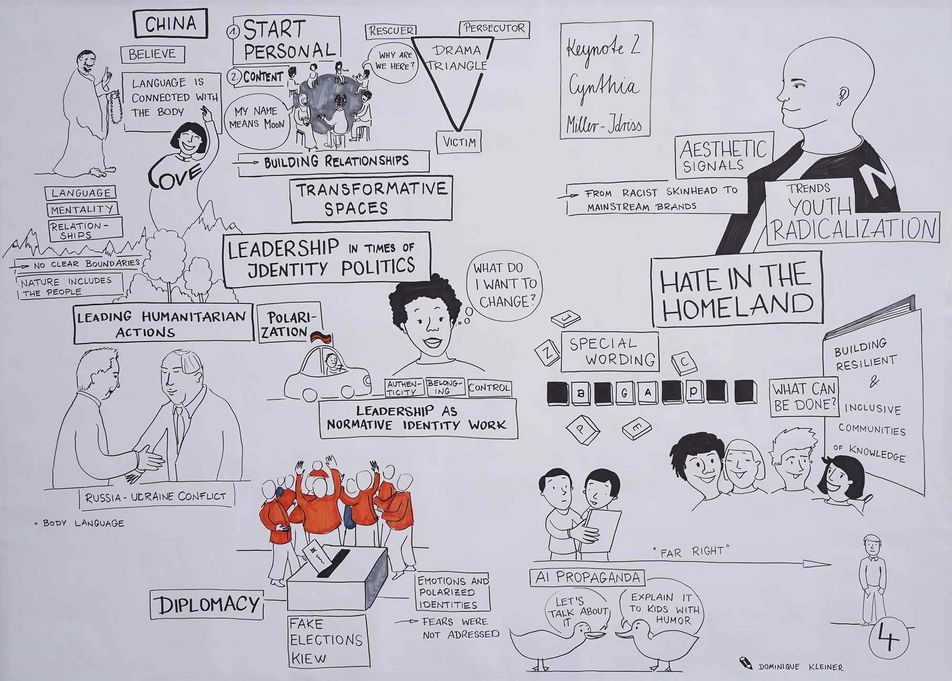 CHINA
BELIEVE
LANGUAGE IS
CONNECTED WITH
THE BODY
LOVE
LANGUAGE
MENTALITY
RELATION-
SHIPS
→ NO CLEAR BOUNDARIES
NATURE INCLUDES
THE PEOPLE
LEADING HUMANITARIAN
ACTIONS
RUSSIA-UCRAINE CONFLICT
• BODY LANGUAGE
1 START
PERSONAL
2 CONTENT
MY NAME
MEANS MOON
WHY ARE
WE HERE?
→ BUILDING RELATIONSHIPS
TRANSFORMATIVE
SPACES
RESCUER
PERSECUTOR
DRAMA
TRIANGLE
VICTIM
LEADERSHIP IN TIMES OF
IDENTITY POLITICS
WHAT DO
I WANT TO
CHANGE?
POLARI-
ZATION
AUTHEN-
TICITY
BELONG-
ING
CONTROL
LEADERSHIP AS
NORMATIVE IDENTITY WORK
DIPLOMACY
FAKE
ELECTIONS
KIEW
EMOTIONS AND
POLARIZED
IDENTITIES
→ FEARS WERE
NOT ADRESSED
Keynote 2
Cynthia
Miller-Idriss
AESTHETIC
SIGNALS
→ FROM RACIST SKINHEAD TO
MAINSTREAM BRANDS
N
TRENDS
YOUTH
RADICALIZATION
HATE IN THE
HOMELAND
J
Z
SPECIAL
WORDING
C
B G A D
P E
WHAT CAN
BE DONE?
BUILDING
RESILIENT
&
INCLUSIVE
COMMUNITIES
OF KNOWLEDGE
"FAR RIGHT"
AI PROPAGANDA
LET'S
TALK ABOUT
IT
EXPLAIN IT
TO KIDS WITH
HUMOR
4
DOMINIQUE KLEINER